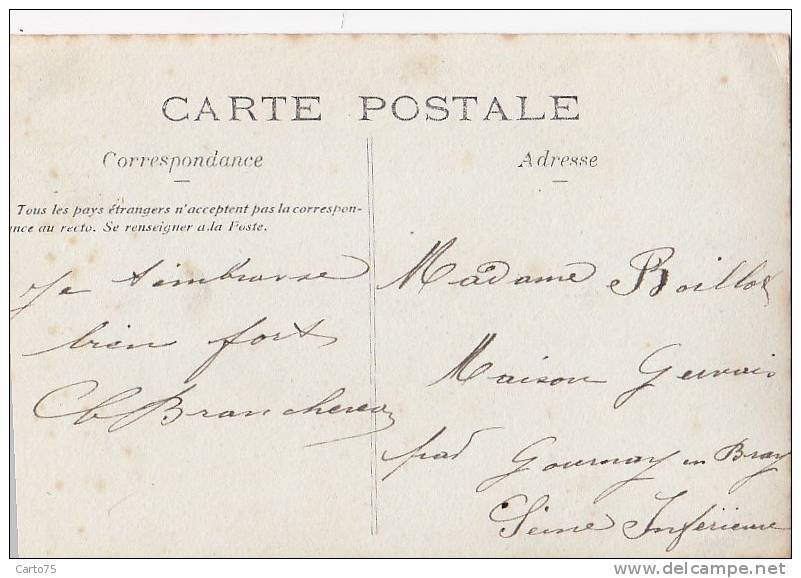 CARTE POSTALE
Correspondance
Tous les pays étrangers n'acceptent pas la correspon-
ance au recto. Se renseigner à la Poste.
Je t'embrasse
bien fort
Ch Branchereau
Adresse
Madame Boillot
Maison Gervais
par Gournay en Bray
Seine Inférieure
Carto75
delcampe.net